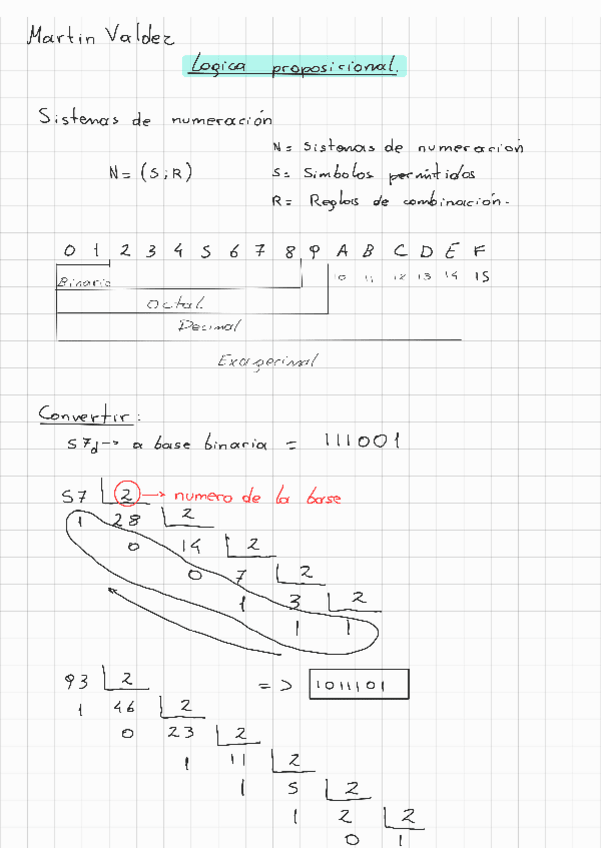 Martin Valdez
Logica proposicional.
Sistemas de numeración
N = Sistemas de numeración
N = (S;R)
S = Simbolos permitidos
R = Reglas de combinación.
0 1 2 3 4 5 6 7 8 9 A B C D E F
10 11 12 13 14 15
Binario
Octal
Decimal
Exagecimal
Convertir:
57d → a base binaria = 111001
57 2 → numero de la base
1 28 2
0 14 2
0 7 2
1 3 2
1 1
93 2 => 1011101
1 46 2
0 23 2
1 11 2
1 5 2
1 2 2
0 1